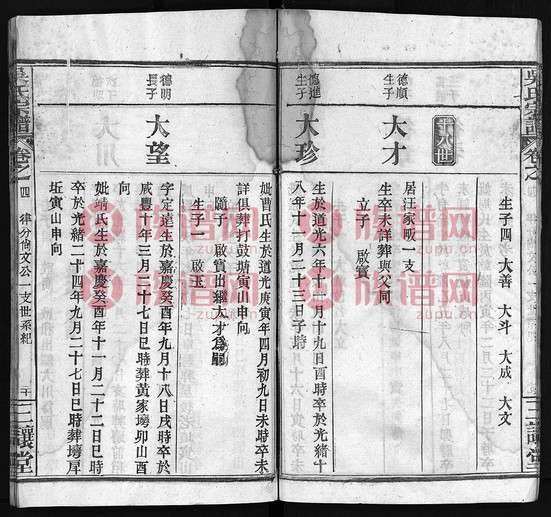 吳氏宗譜
卷之
三讓堂
生子四 大善 大斗 大成 大文
十八世
德順
生子
大才
居汪家畈一支
生卒未詳葬與父同
立子 啟寶
德進
生子
大珍
生於道光六年十一月十九日酉時卒於光緒十
八年十一月二十三日子時
妣曹氏生於道光庚寅年四月初九日未時卒未
詳俱葬打鼓塘寅山申向
隨子 啟寶出繼大才為嗣
生子一 啟玉
德明
長子
大望
字定遠生於嘉慶癸酉年九月十八日戌時卒於
咸豐十年三月二十七日巳時葬黃家塝卯山酉
向
妣靖氏生於嘉慶癸酉年十一月二十二日巳時
卒於光緒二十四年九月二十七日巳時葬塝岸
坵寅山申向
吳氏宗譜
卷之四 律分尙文公一支世系紀
二十
三讓堂
族谱网
zupu.cn